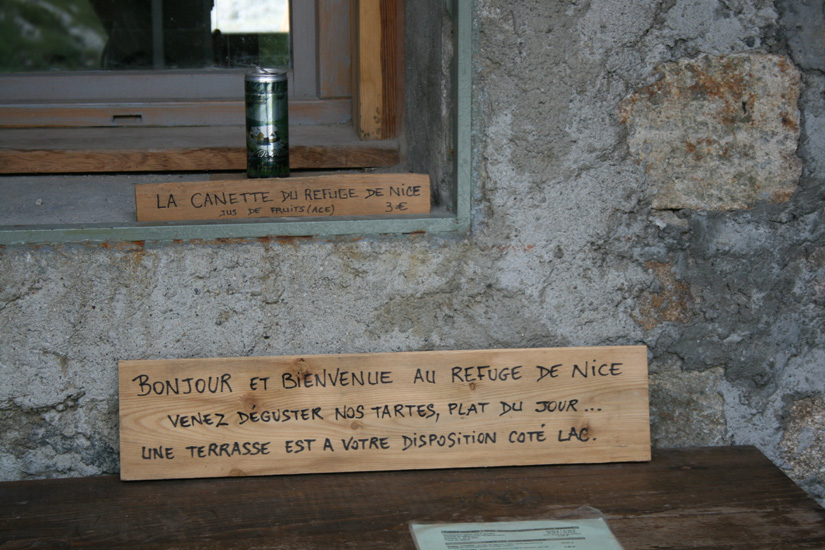 LA CANETTE DU REFUGE DE NICE
JUS DE FRUITS (ACE) 3€
BONJOUR ET BIENVENUE AU REFUGE DE NICE
VENEZ DÉGUSTER NOS TARTES, PLAT DU JOUR...
UNE TERRASSE EST A VOTRE DISPOSITION COTÉ LAC.